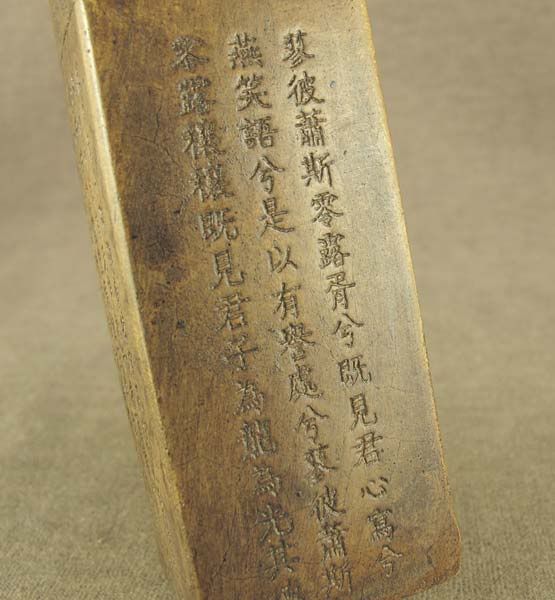 蓼彼蕭斯零露胥兮既見君心寫兮
燕笑語兮是以有譽處兮蓼彼蕭斯
零露穰穰既見君子為龍為光其